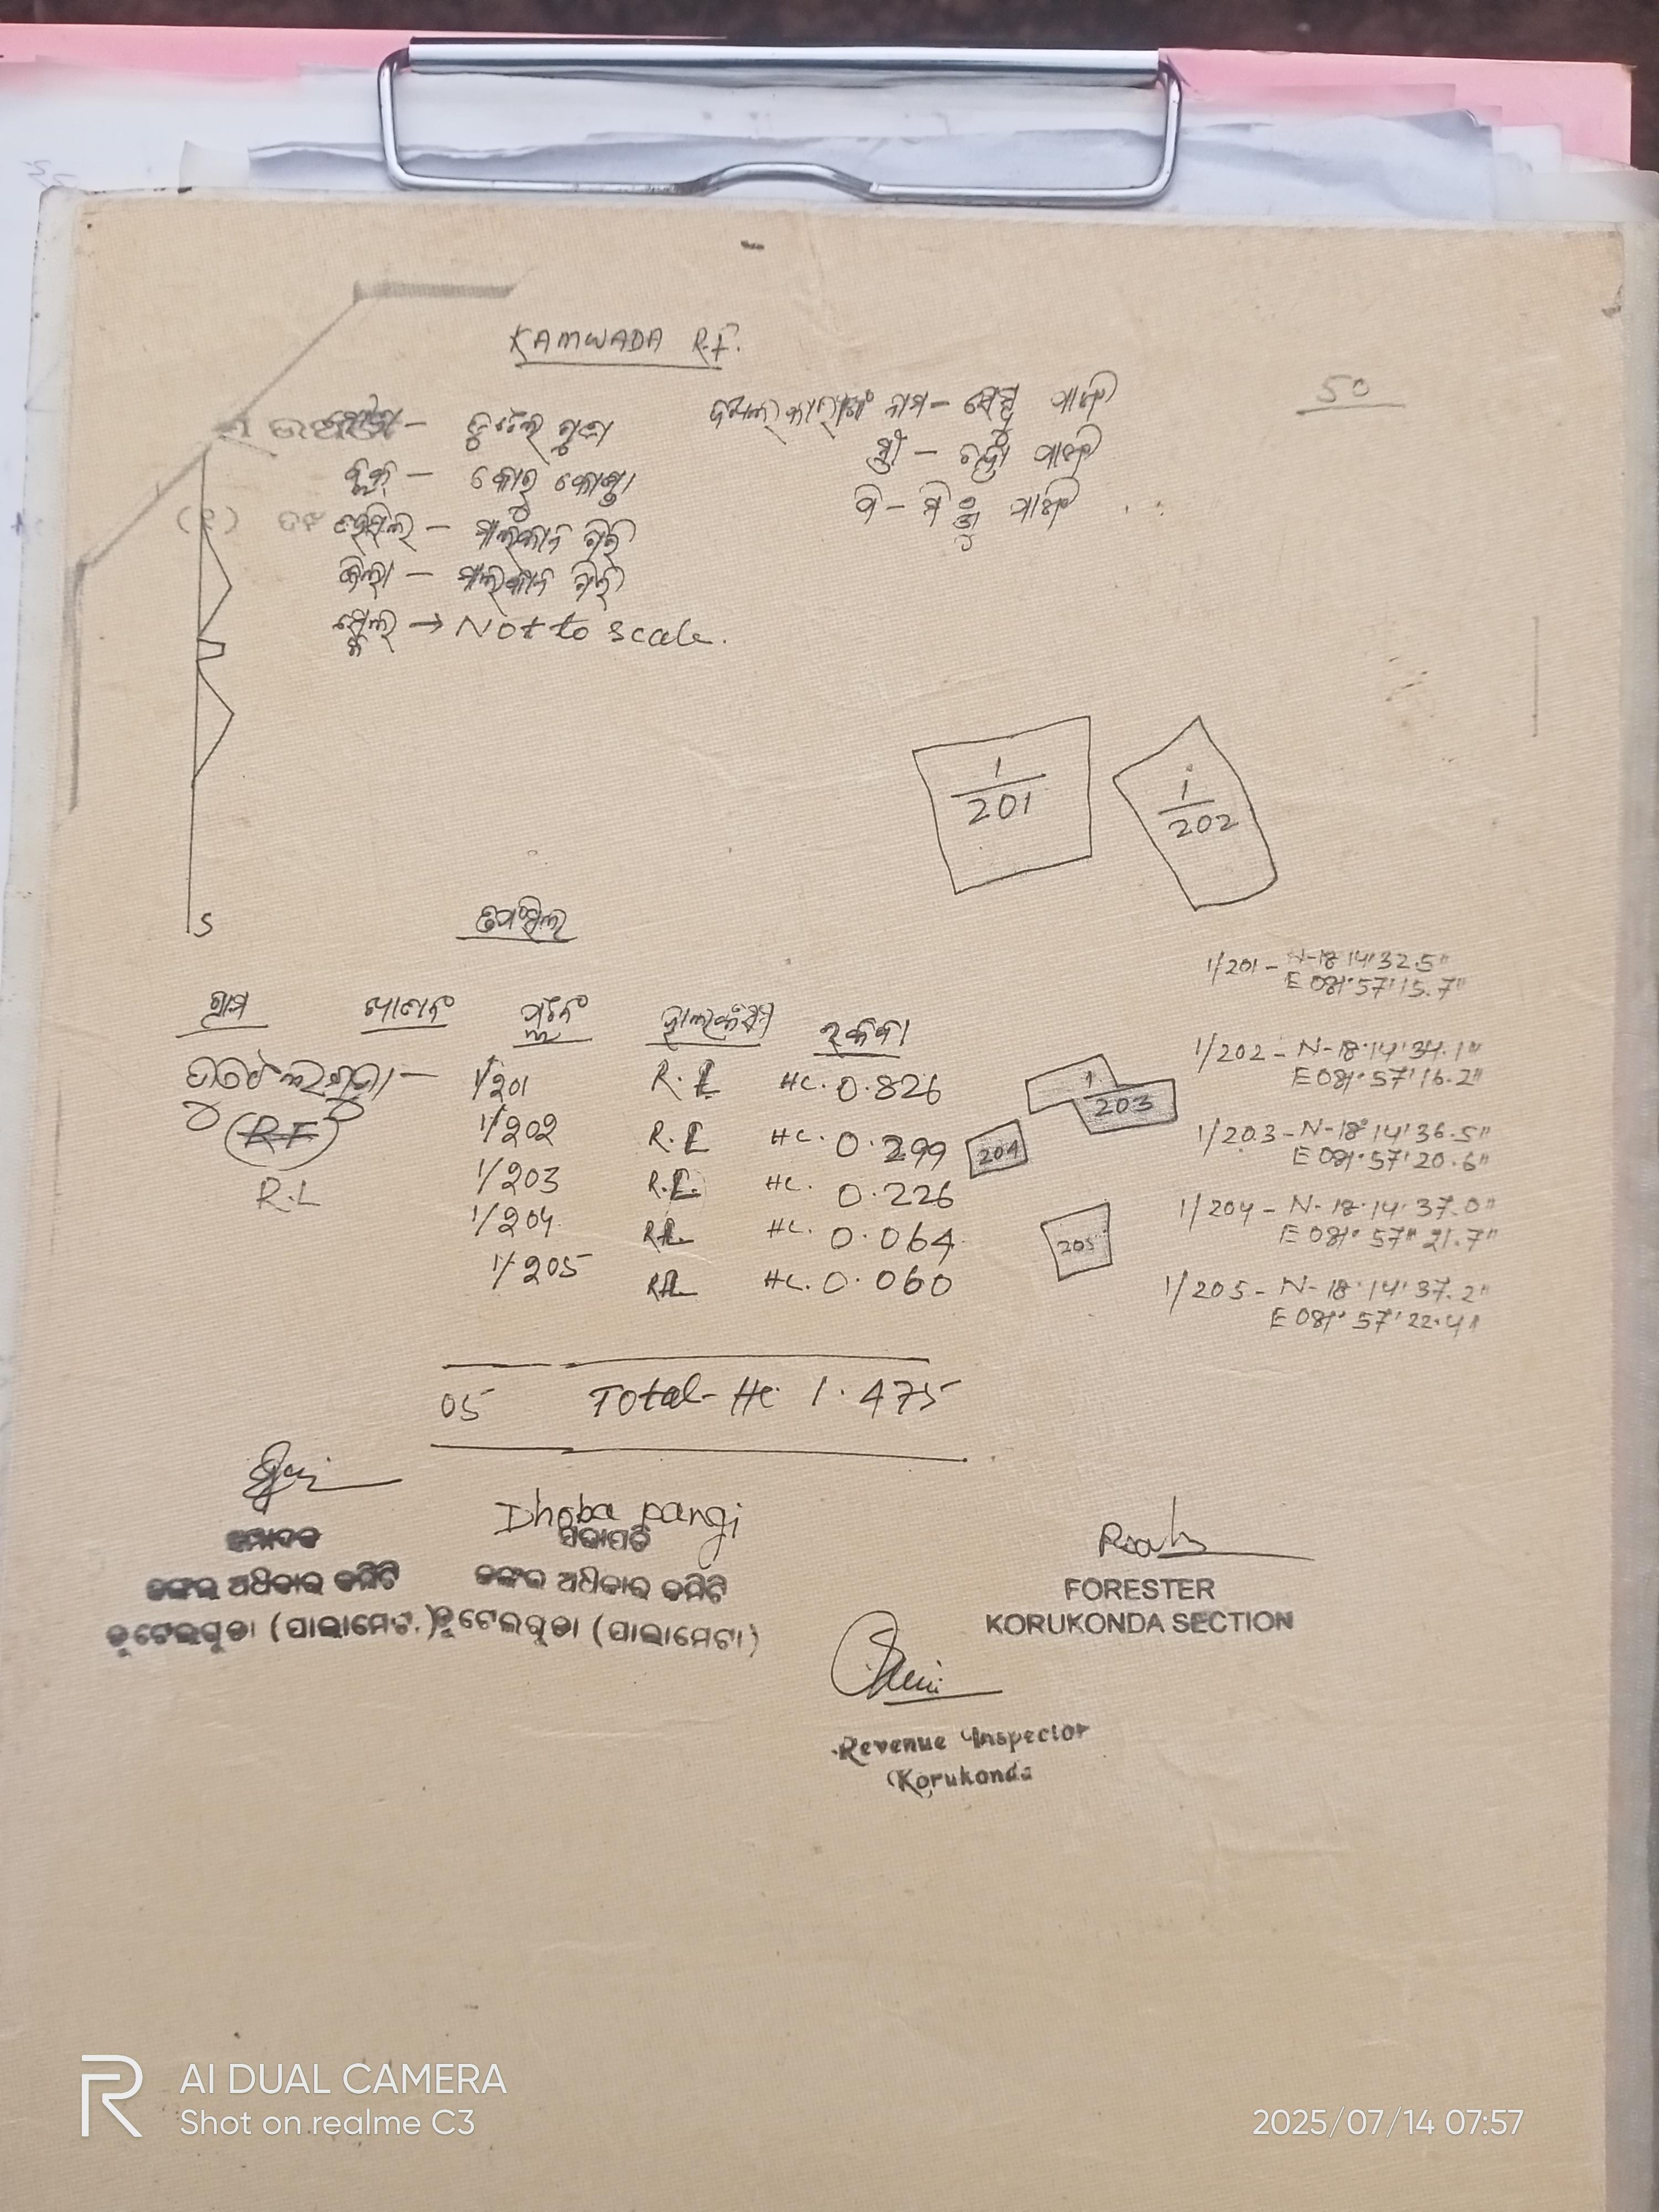 KAMWADA R.F.
50
ମୌଜା - ତୁଟେଲ ଗୁଡା
ଦଖଲକାରୀଙ୍କ ନାମ - ମାଝି
ବ୍ଲକ - କୋରୁକୋଣ୍ଡା
ସ୍ତ୍ରୀ - ମାଝି
ତହସିଲ - ମାଲକାନଗିରି
ପି - ମାଝି
ଜିଲା - ମାଲକାନଗିରି
ସ୍କେଲ → Not to scale.
1/201
1/202
S
ତପସିଲ
1/201 - N-18°14'32.5"
E 081°57'15.7"
ଗ୍ରାମ ଖାତାନଂ ପ୍ଲଟନଂ ହାଲକିସମ ରକବା
1/201 R.L Hc. 0.826
1/202 R.L Hc. 0.299
R.L
1/203 R.L. Hc. 0.226
1/204 RL Hc. 0.064
1/205 RL Hc. 0.060
1/203
204
205
1/202 - N-18°14'34.1"
E 081°57'16.2"
1/203 - N-18°14'36.5"
E 081°57'20.6"
1/204 - N-18°14'37.0"
E 081°57"21.7"
1/205 - N-18°14'37.2"
E 081°57'22.4"
05 Total- Hc 1.475
Dhoba pangi
ସଭାପତି
ଜଙ୍ଗଲ ଅଧିକାର କମିଟି ଜଙ୍ଗଲ ଅଧିକାର କମିଟି
ତୁଟେଲଗୁଡା (ପାଲାମେଟା) ତୁଟେଲଗୁଡା (ପାଲାମେଟା)
FORESTER
KORUKONDA SECTION
Revenue Inspector
Korukonda
AI DUAL CAMERA
Shot on realme C3
2025/07/14 07:57